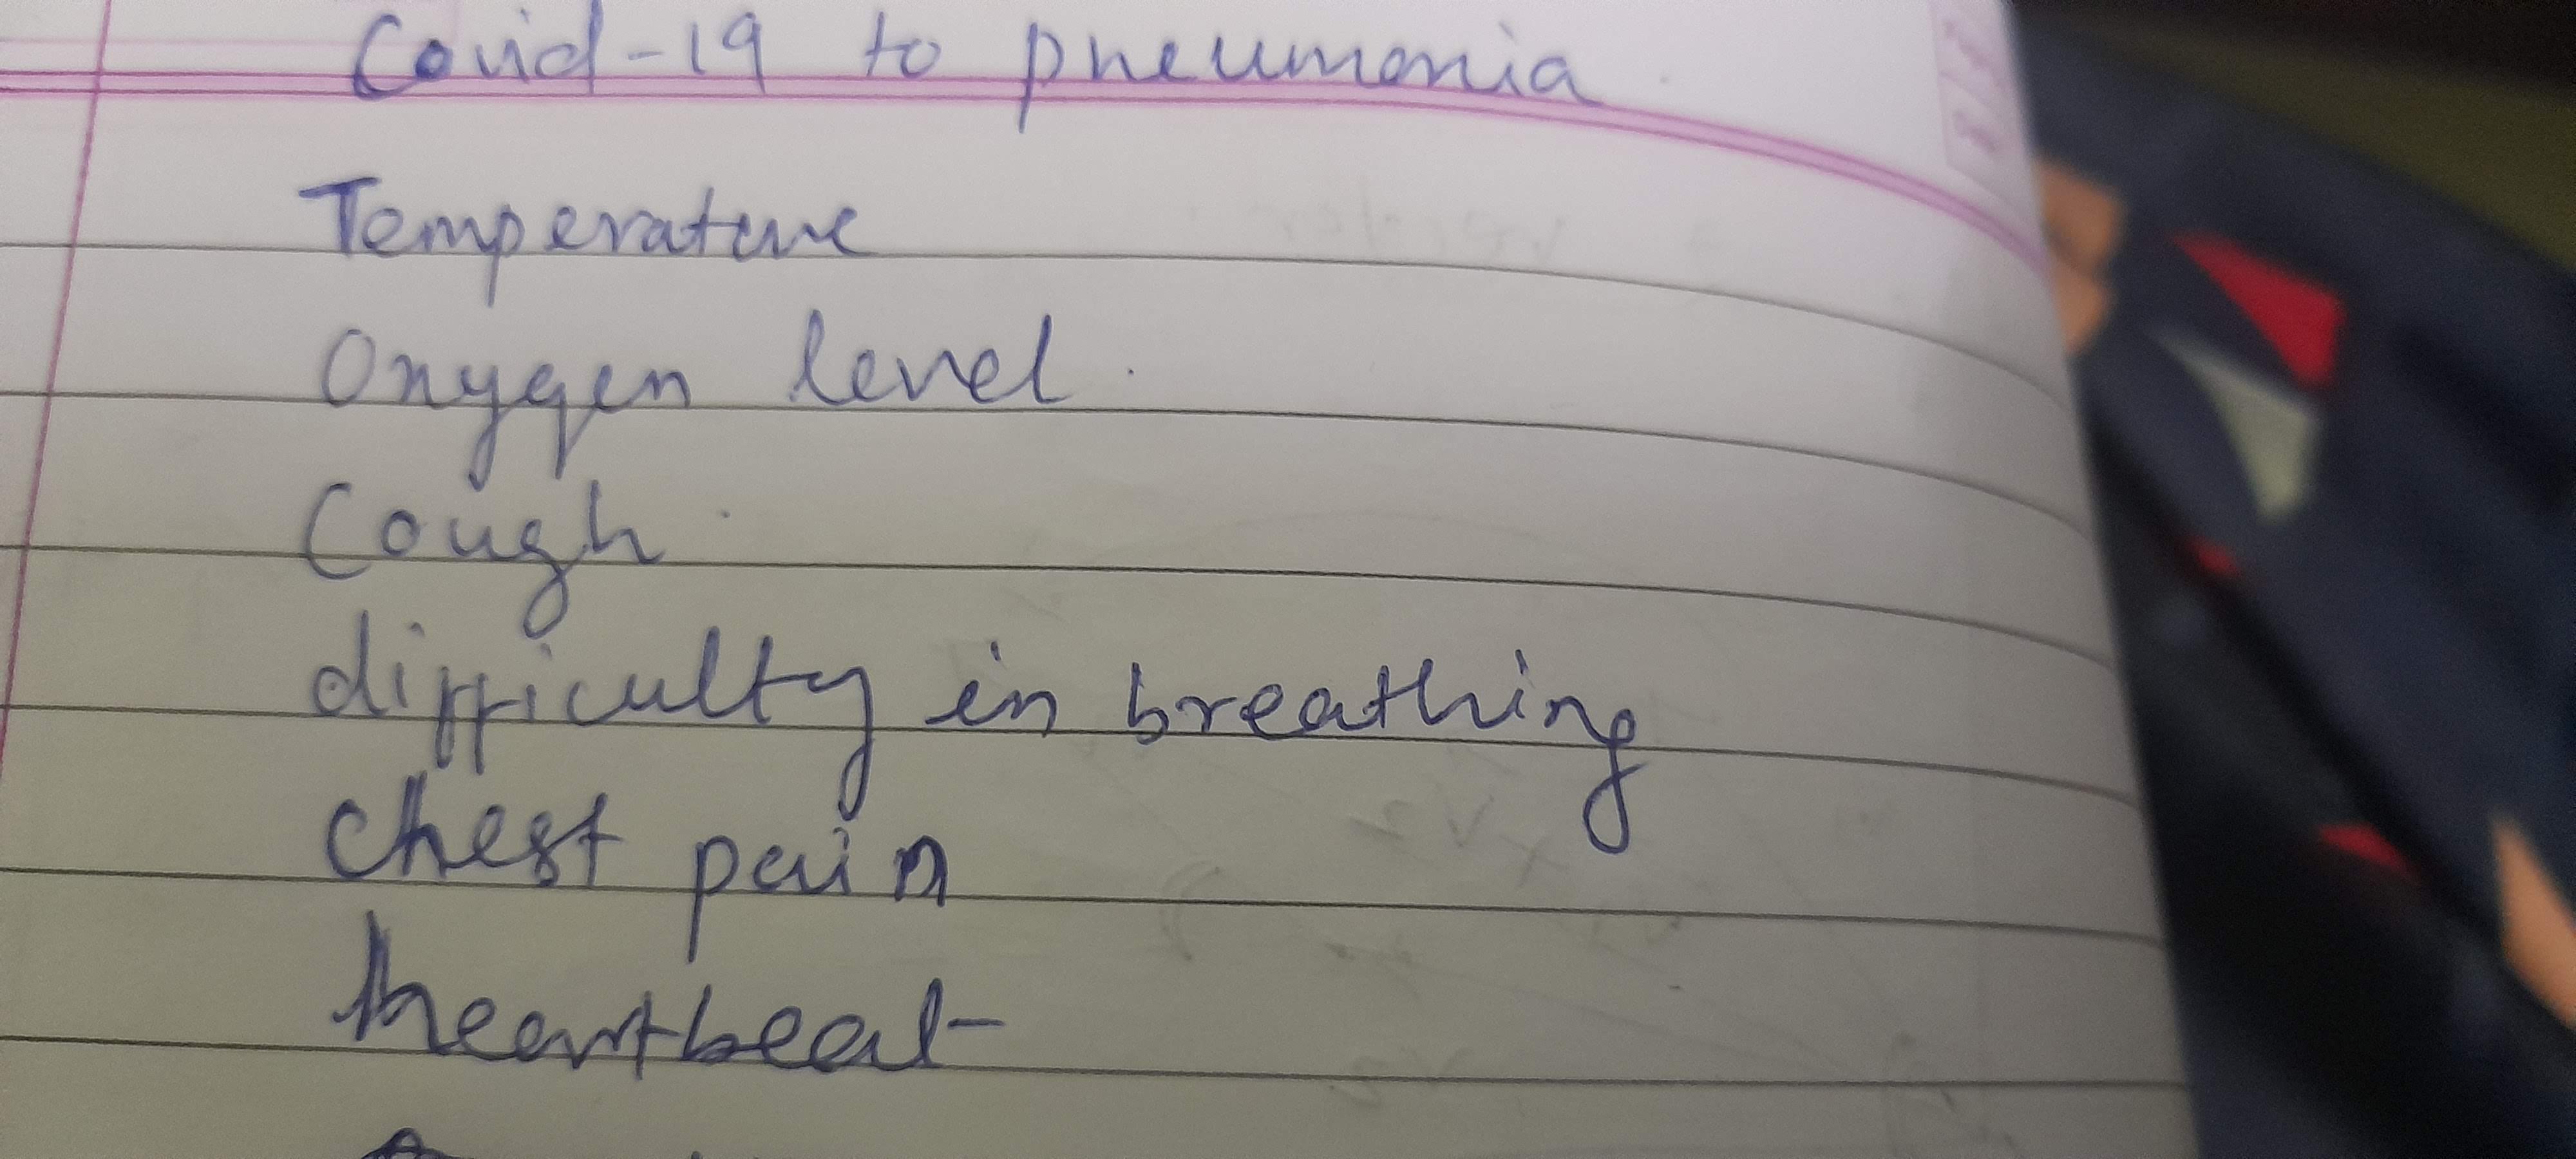 Covid-19 to pneumonia
Temperature
Oxygen level.
Cough
difficulty in breathing
chest pain
heartbeat